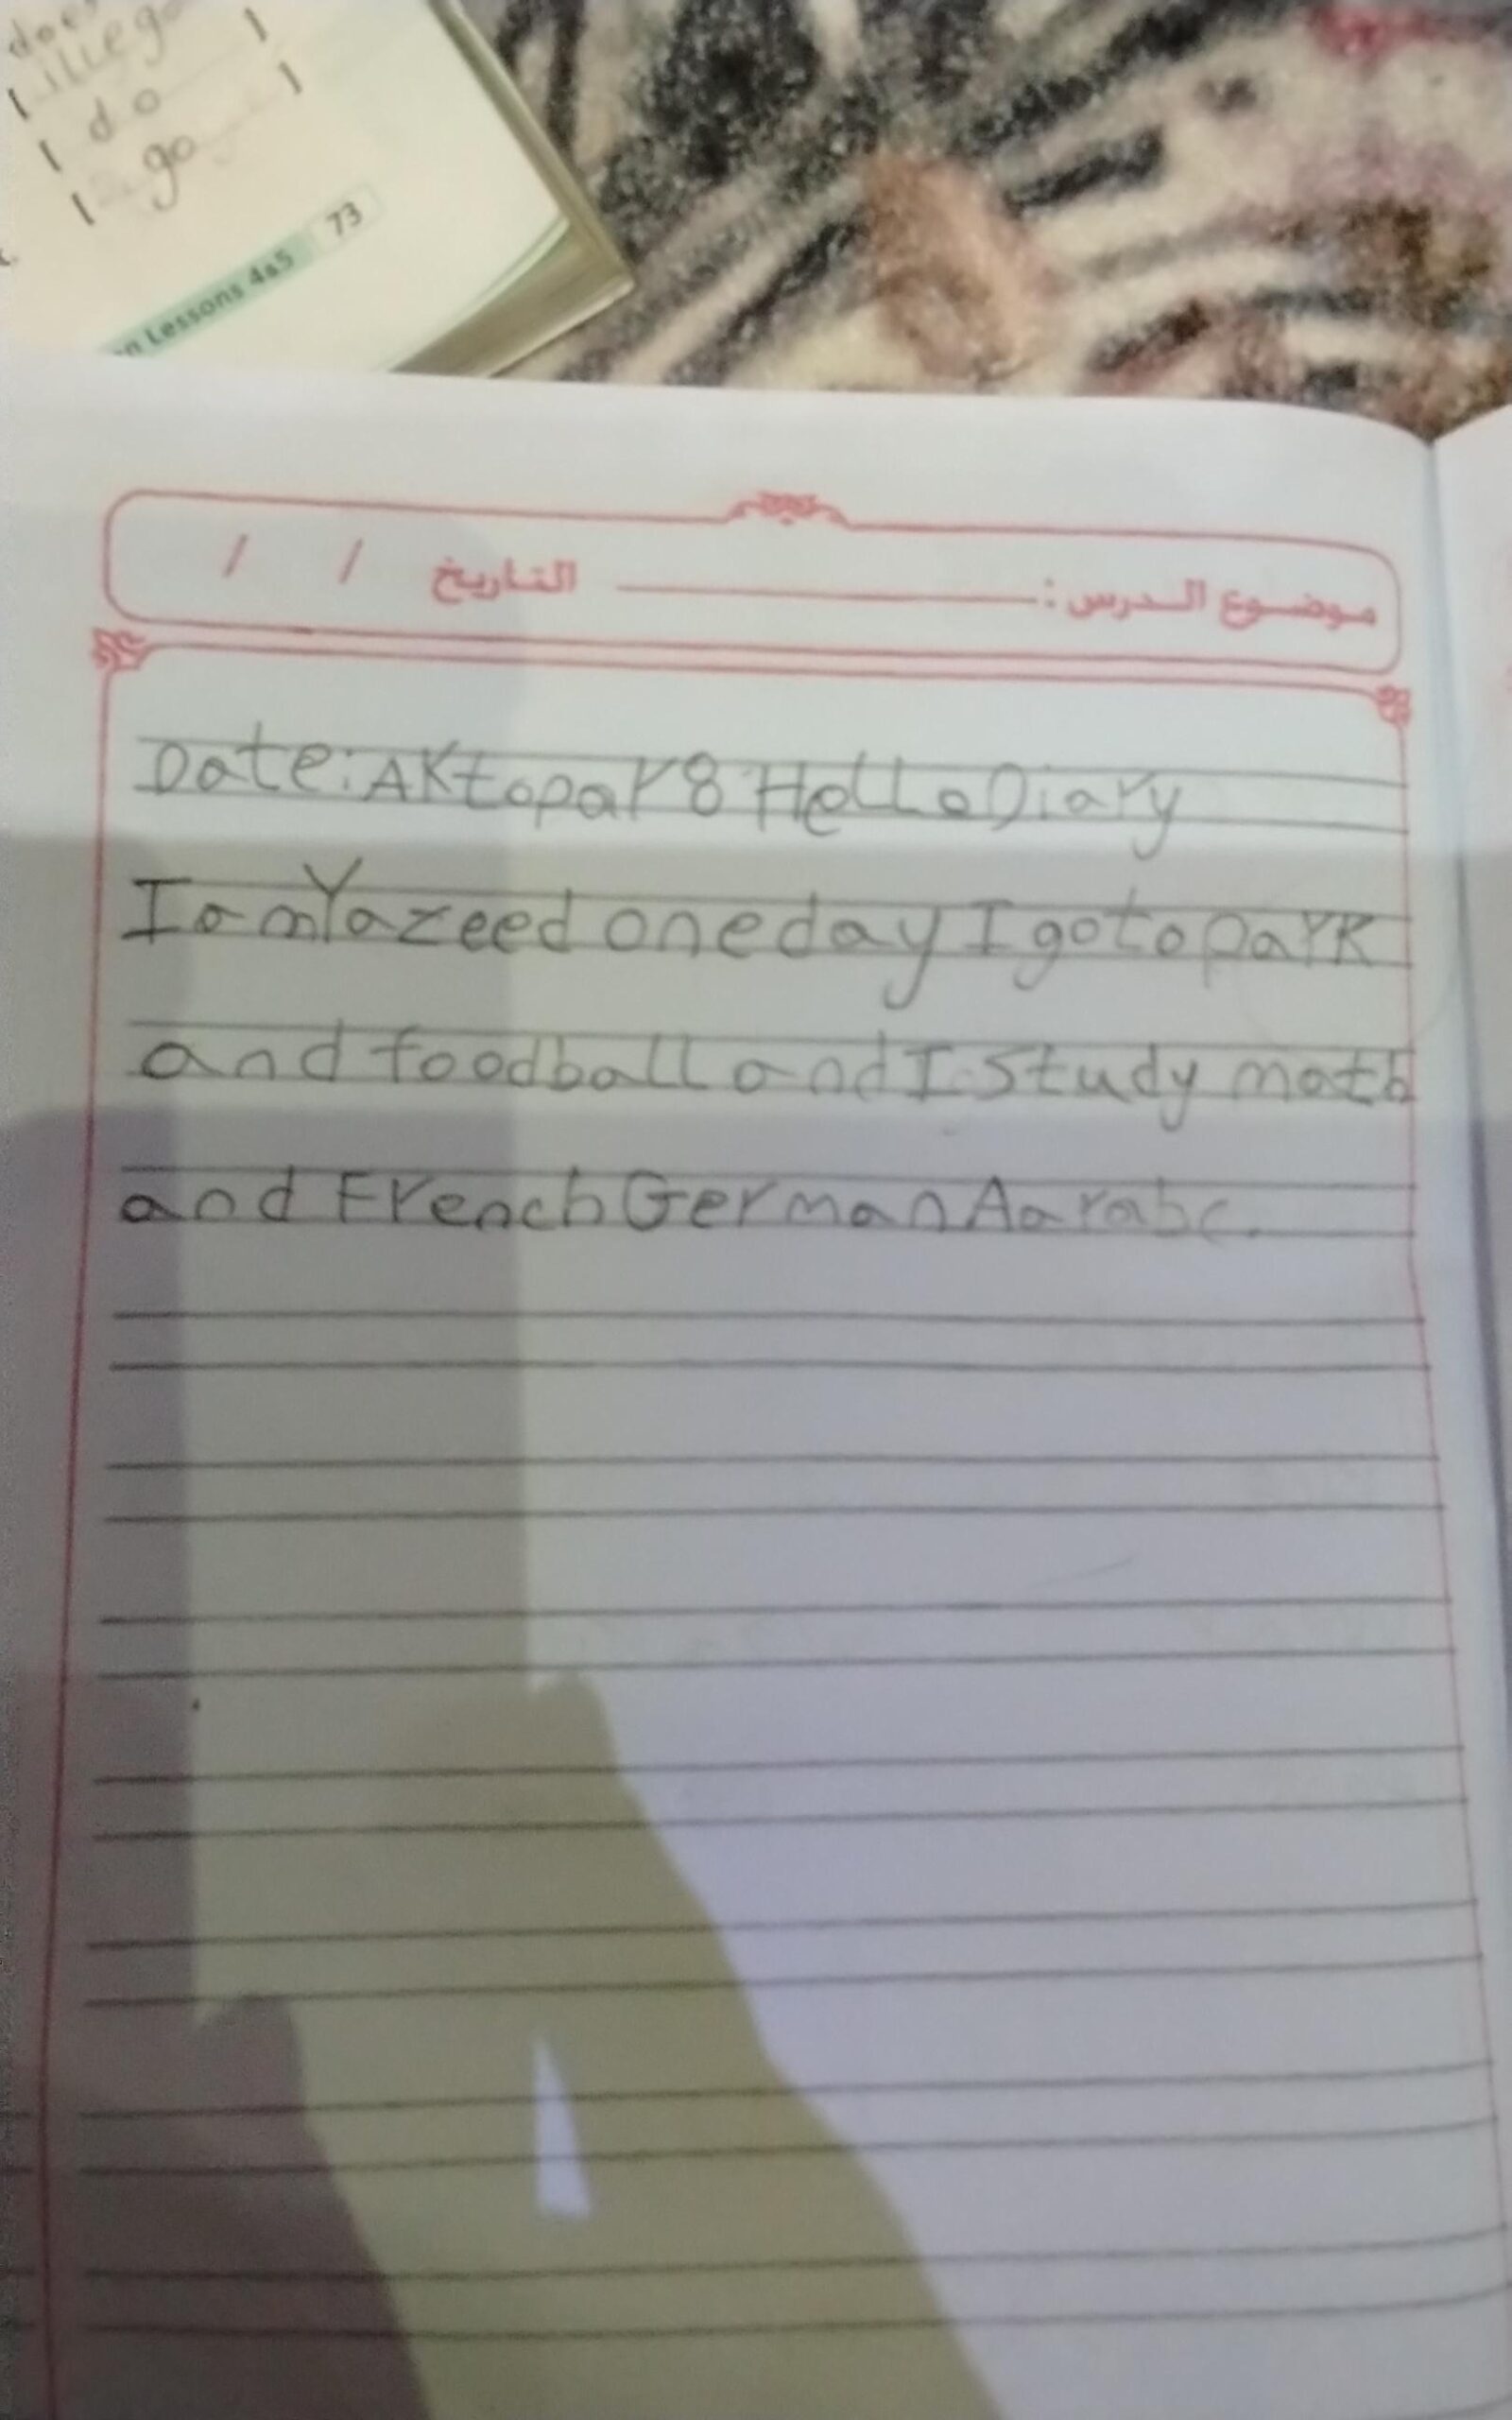 I do I
I go I
Lessons 4&5 73
موضوع الدرس : التاريخ / /
Date: AKtopar 8 Hello Diary
I am Yazeed one day I go to park
and foodball and I study math
and French German Aarabc.